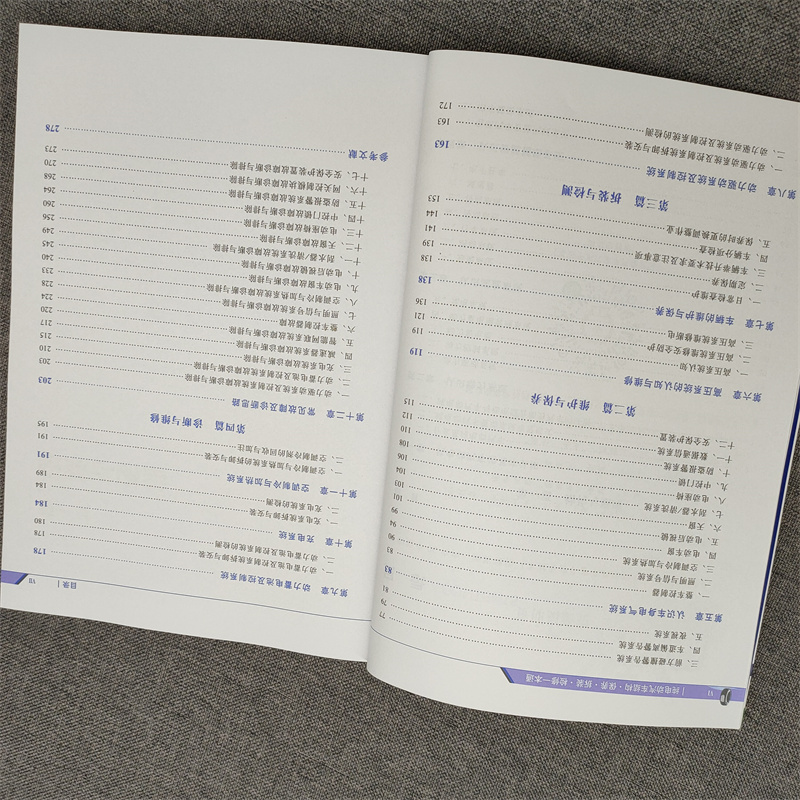 VI
纯电动汽车结构·保养·拆装·检修一本通
三、前方碰撞警告系统 77
四、车道偏离警告系统 79
五、夜视系统 81
第五章 认识车身电气系统 83
一、整车控制器 83
二、照明与信号系统 83
三、空调制冷与加热系统 90
四、电动车窗 94
五、电动后视镜 96
六、天窗 99
七、刮水器/清洗系统 101
八、电动座椅 103
九、中控门锁 104
十、防盗报警系统 106
十一、数据通信系统 110
十二、安全保护装置 112
第二篇 维护与保养
第六章 高压系统的认知与维修 119
一、高压系统认知 119
二、高压系统维修安全防护 119
三、高压系统维修断电 121
第七章 车辆的维护与保养 138
一、日常检查维护 138
二、定期保养 138
三、车辆举升技术要求及注意事项 139
四、车辆分项检查 141
五、保养时的更换调整作业 153
第三篇 拆装与检测
第八章 动力驱动系统及控制系统 163
一、动力驱动系统及控制系统拆卸与安装 163
二、动力驱动系统及控制系统的检测 172
目录
VII
第九章 动力蓄电池及控制系统 178
一、动力蓄电池及控制系统拆卸与安装 178
二、动力蓄电池及控制系统的检测 180
第十章 充电系统 184
一、充电系统拆卸与安装 184
二、充电系统的检测 189
第十一章 空调制冷与加热系统 191
一、空调制冷与加热系统的拆卸与安装 191
二、空调制冷剂的回收与加注 195
第四篇 诊断与维修
第十二章 常见故障及诊断思路 203
一、动力驱动及控制系统故障诊断与排除 203
二、动力蓄电池及控制系统故障诊断与排除 210
三、充电系统故障诊断与排除 215
四、减速器系统故障诊断与排除 217
五、智能网联系统故障诊断维修 220
六、整车控制器故障 224
七、照明与信号系统故障诊断与排除 228
八、空调制冷与加热系统故障诊断与排除 233
九、电动车窗故障诊断与排除 240
十、电动后视镜故障诊断与排除 245
十一、刮水器/清洗系统故障诊断与排除 249
十二、天窗故障诊断与排除 256
十三、电动座椅故障诊断与排除 260
十四、中控门锁故障诊断与排除 264
十五、防盗报警系统故障诊断与排除 268
十六、网关控制模块故障诊断与排除 270
十七、安全保护装置故障诊断与排除 273
参考文献 278